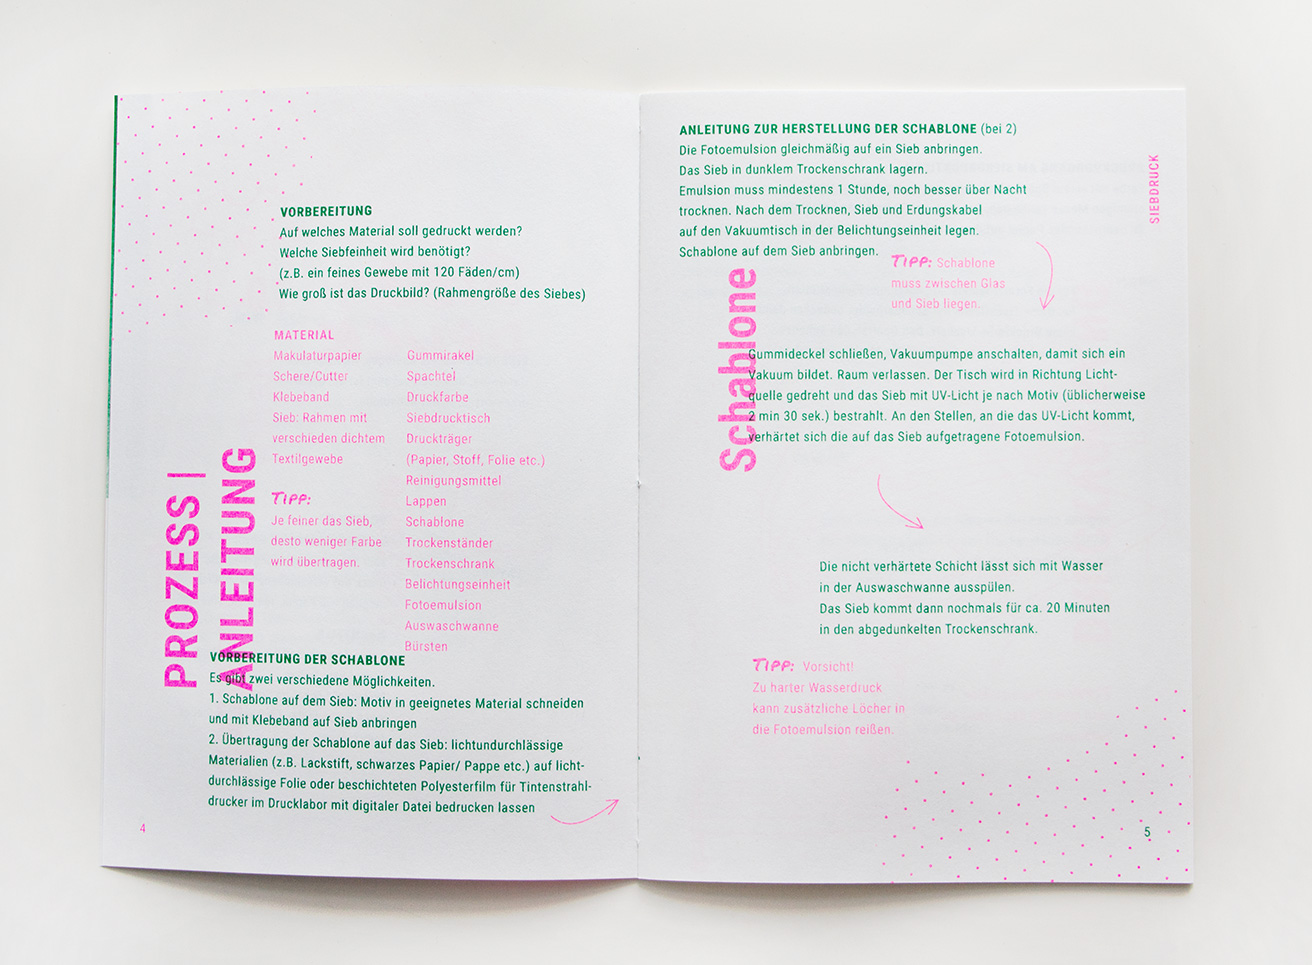 VORBEREITUNG
Auf welches Material soll gedruckt werden?
Welche Siebfeinheit wird benötigt?
(z.B. ein feines Gewebe mit 120 Fäden/cm)
Wie groß ist das Druckbild? (Rahmengröße des Siebes)
MATERIAL
Makulaturpapier
Schere/Cutter
Klebeband
Sieb: Rahmen mit
verschieden dichtem
Textilgewebe
TIPP:
Je feiner das Sieb,
desto weniger Farbe
wird übertragen.
Gummirakel
Spachtel
Druckfarbe
Siebdrucktisch
Druckträger
(Papier, Stoff, Folie etc.)
Reinigungsmittel
Lappen
Schablone
Trockenständer
Trockenschrank
Belichtungseinheit
Fotoemulsion
Auswaschwanne
Bürsten
PROZESS |
ANLEITUNG
VORBEREITUNG DER SCHABLONE
Es gibt zwei verschiedene Möglichkeiten.
1. Schablone auf dem Sieb: Motiv in geeignetes Material schneiden
und mit Klebeband auf Sieb anbringen
2. Übertragung der Schablone auf das Sieb: lichtundurchlässige
Materialien (z.B. Lackstift, schwarzes Papier/ Pappe etc.) auf licht-
durchlässige Folie oder beschichteten Polyesterfilm für Tintenstrahl-
drucker im Drucklabor mit digitaler Datei bedrucken lassen
4
ANLEITUNG ZUR HERSTELLUNG DER SCHABLONE (bei 2)
Die Fotoemulsion gleichmäßig auf ein Sieb anbringen.
Das Sieb in dunklem Trockenschrank lagern.
Emulsion muss mindestens 1 Stunde, noch besser über Nacht
trocknen. Nach dem Trocknen, Sieb und Erdungskabel
auf den Vakuumtisch in der Belichtungseinheit legen.
Schablone auf dem Sieb anbringen.
SIEBDRUCK
TIPP: Schablone
muss zwischen Glas
und Sieb liegen.
Schablone
Gummideckel schließen, Vakuumpumpe anschalten, damit sich ein
Vakuum bildet. Raum verlassen. Der Tisch wird in Richtung Licht-
quelle gedreht und das Sieb mit UV-Licht je nach Motiv (üblicherweise
2 min 30 sek.) bestrahlt. An den Stellen, an die das UV-Licht kommt,
verhärtet sich die auf das Sieb aufgetragene Fotoemulsion.
Die nicht verhärtete Schicht lässt sich mit Wasser
in der Auswaschwanne ausspülen.
Das Sieb kommt dann nochmals für ca. 20 Minuten
in den abgedunkelten Trockenschrank.
TIPP: Vorsicht!
Zu harter Wasserdruck
kann zusätzliche Löcher in
die Fotoemulsion reißen.
5